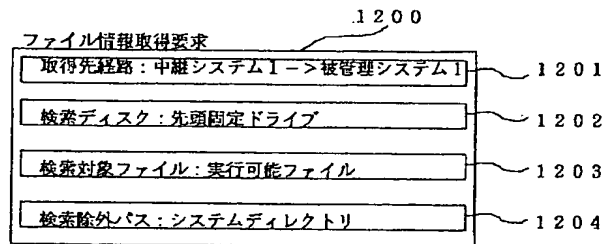 1200
ファイル情報取得要求
取得先経路：中継システム1－>被管理システム1
1201
検索ディスク：先頭固定ドライブ
1202
検索対象ファイル：実行可能ファイル
1203
検索除外パス：システムディレクトリ
1204